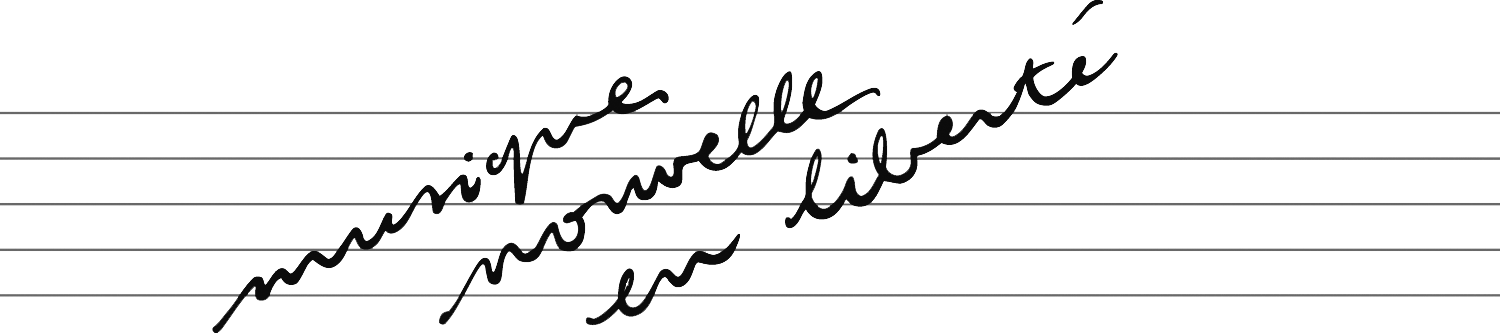 musique
nouvelle
en liberté